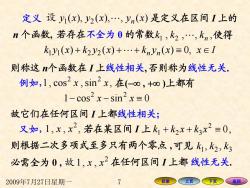 定义 设 y₁(x), y₂(x),⋯, yₙ(x) 是定义在区间 I 上的
n 个函数, 若存在不全为 0 的常数k₁, k₂ ,⋯, kₙ ,使得
k₁y₁(x) + k₂y₂(x) + ⋯ + kₙyₙ(x) ≡ 0, x∈I
则称这 n个函数在 I 上线性相关, 否则称为线性无关.
例如, 1, cos² x , sin² x , 在(−∞ , +∞ )上都有
1− cos² x − sin² x ≡ 0
故它们在任何区间 I 上都线性相关;
又如, 1, x , x² , 若在某区间 I 上 k₁ + k₂x + k₃x² ≡ 0,
则根据二次多项式至多只有两个零点 ,可见 k₁, k₂, k₃
必需全为 0 , 故 1, x , x² 在任何区间 I 上都 线性无关.
2009年7月27日星期一 7